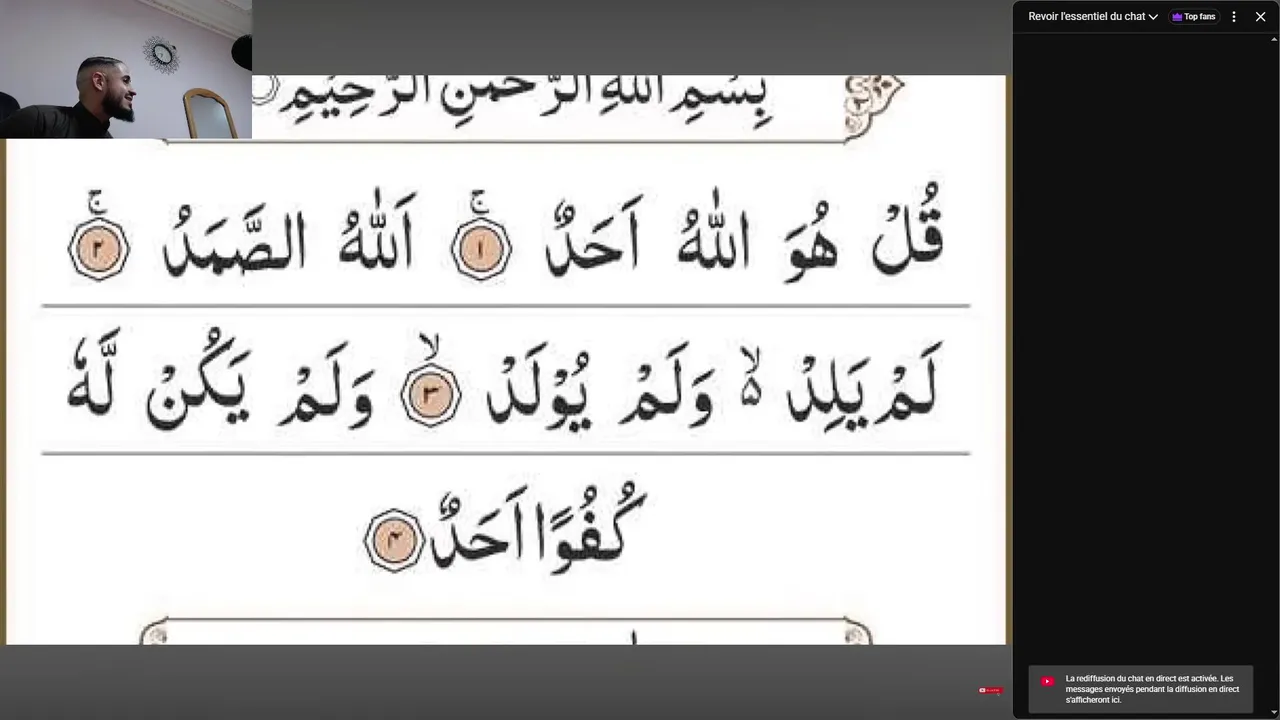 بِسْمِ اللّٰهِ الرَّحْمٰنِ الرَّحِيْمِ
قُلْ هُوَ اللّٰهُ اَحَدٌ ۚ ۝١ اَللّٰهُ الصَّمَدُ ۚ ۝٢
لَمْ يَلِدْ ۙ۬ وَلَمْ يُوْلَدْ ۙ ۝٣ وَلَمْ يَكُنْ لَّهٗ
كُفُوًا اَحَدٌ ۝٤
Revoir l'essentiel du chat
Top fans
La rediffusion du chat en direct est activée. Les
messages envoyés pendant la diffusion en direct
s'afficheront ici.